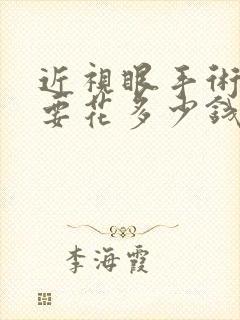 近視眼手術
要花多少錢
李海霞